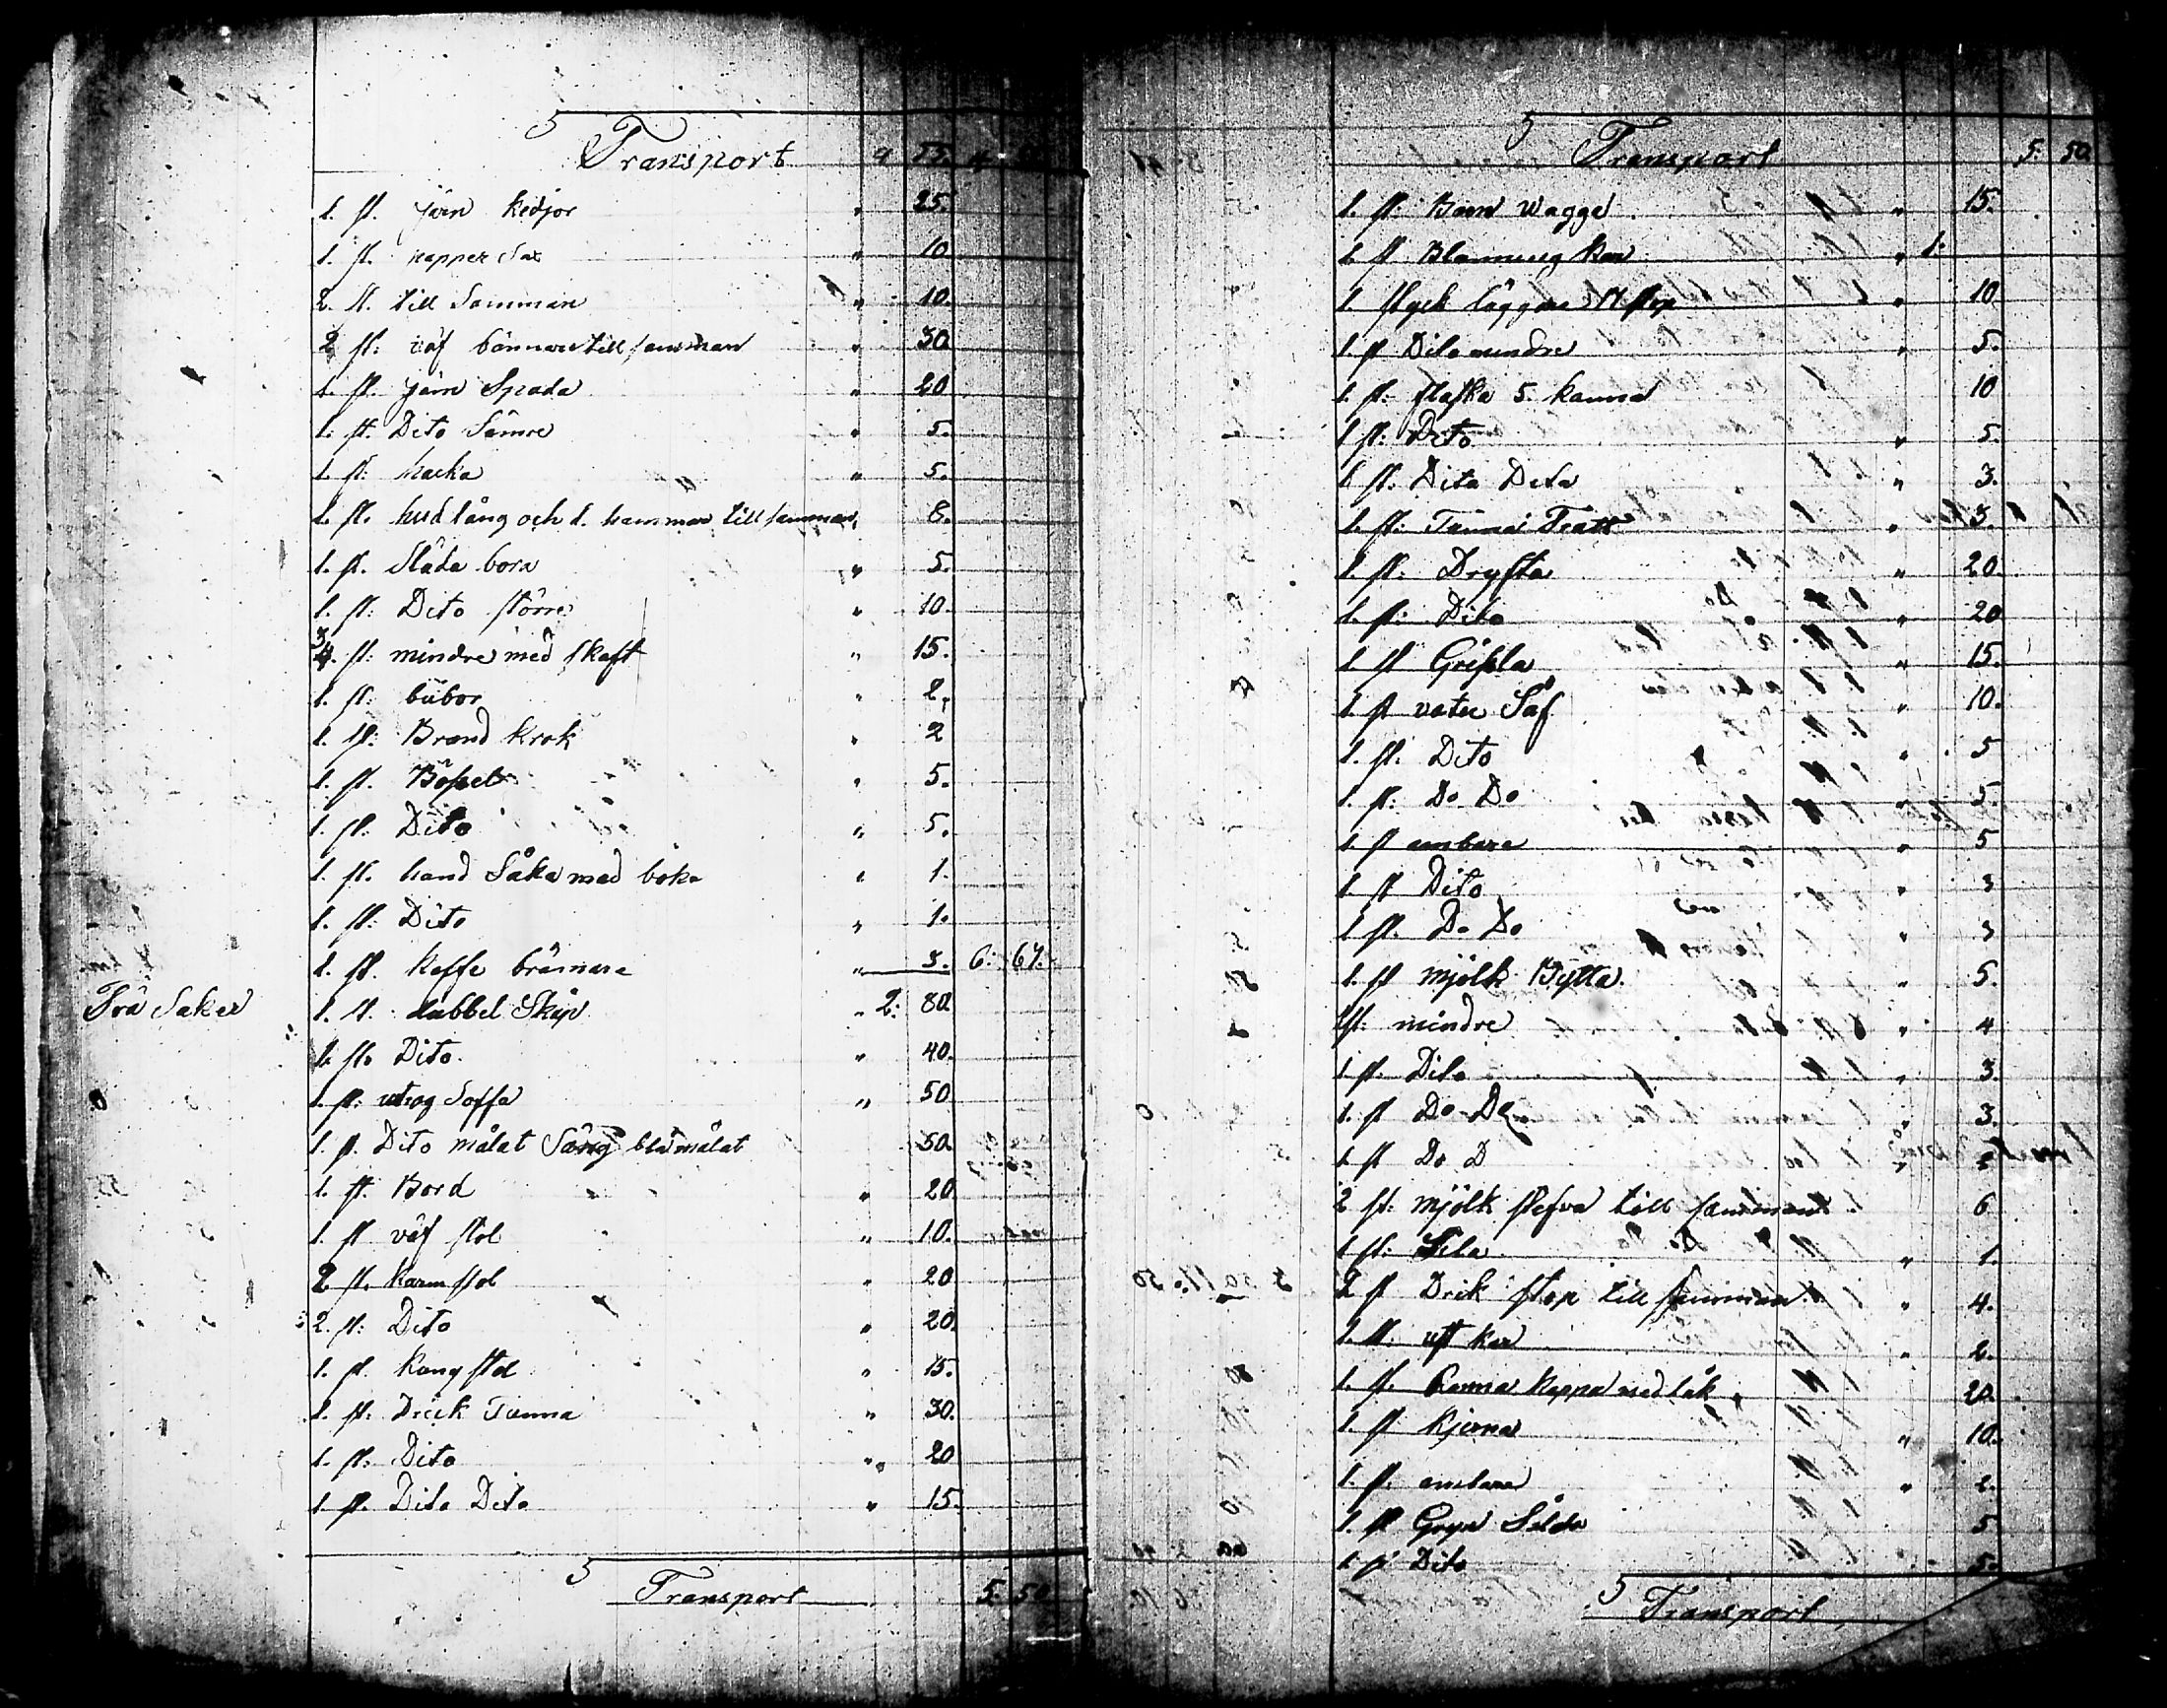 Transport 55.
1. st. järn kedjor " 25.
1. st. papper Sax " 10
2. st. till Samman " 10.
2 st: väf bännare till samman " 30
1. st. järn Spada " 20
1. st. Dito Sämre " 5.
1. st: hacka " 5.
1. st. hud lång och 1. hammar till samman " 8.
1. st. Släda bora " 5.
1. st: Dito större " 10.
3 st: mindre med skaft " 15.
1. st: bübor " 2,
1. st: Brand krok " 2
1. st. Bösset " 5.
1. st. Dito " 5.
1. st. hand Såka med böka " 1.
1. st: Dito " 1.
1. st. Kaffe brännare " 3. 6: 67.
Trä Saker 1. st. dubbel Skåp " 2: 80.
1. st. Dito " 40.
1. st: utrag Soffa " 50
1. st. Dito målat Säng blåmålat 50.
1. st. Bord " 20
1. st väf stol " 10.
2 st. Karm stol " 20
2. st: Dito " 20.
1. st. Kang stol " 15.
1. st: Drick Tunna " 30.
1. st: Dito " 20
1. st. Dito Dito " 15.
Transport 5. 50
Transport 5. 50
1. st: Barn Wagge " 15.
1. st Blanning Kar " 1.
1. styck läggare 17 stop " 10
1. st Dito mindre " 5.
1. st: flaska 5. kanna 10
1 st: Dito " 5.
1 st. Dito Dito " 3.
1. st: Tunna Tratt " 3.
1. st: Drysta " 20.
1. st: Dito " 20
1 st Grissla " 15.
1. st vaten Så " 10.
1. st: Dito " 5
1. st: Do Do " 5.
1 st ambare " 5
1 st Dito " 3
1 st. Do Do " 3
1. st mjölk Bytta " 5.
1 st: mindre " 4
1 st. Dito " 3.
1. st Do Do " 3.
1 st Do D " 5
2 st: mjölk stefva till samman 6
1 st: Sila " 1.
2 st Drik stop till samman " 4.
1. st: ost kar " 2.
1. st. Kanna Kappa med låk " 20.
1 st Kjerna " 10.
1. st: ambare " 2.
1. st Gryn Sålda 5
1. st Dito 5.
Transport